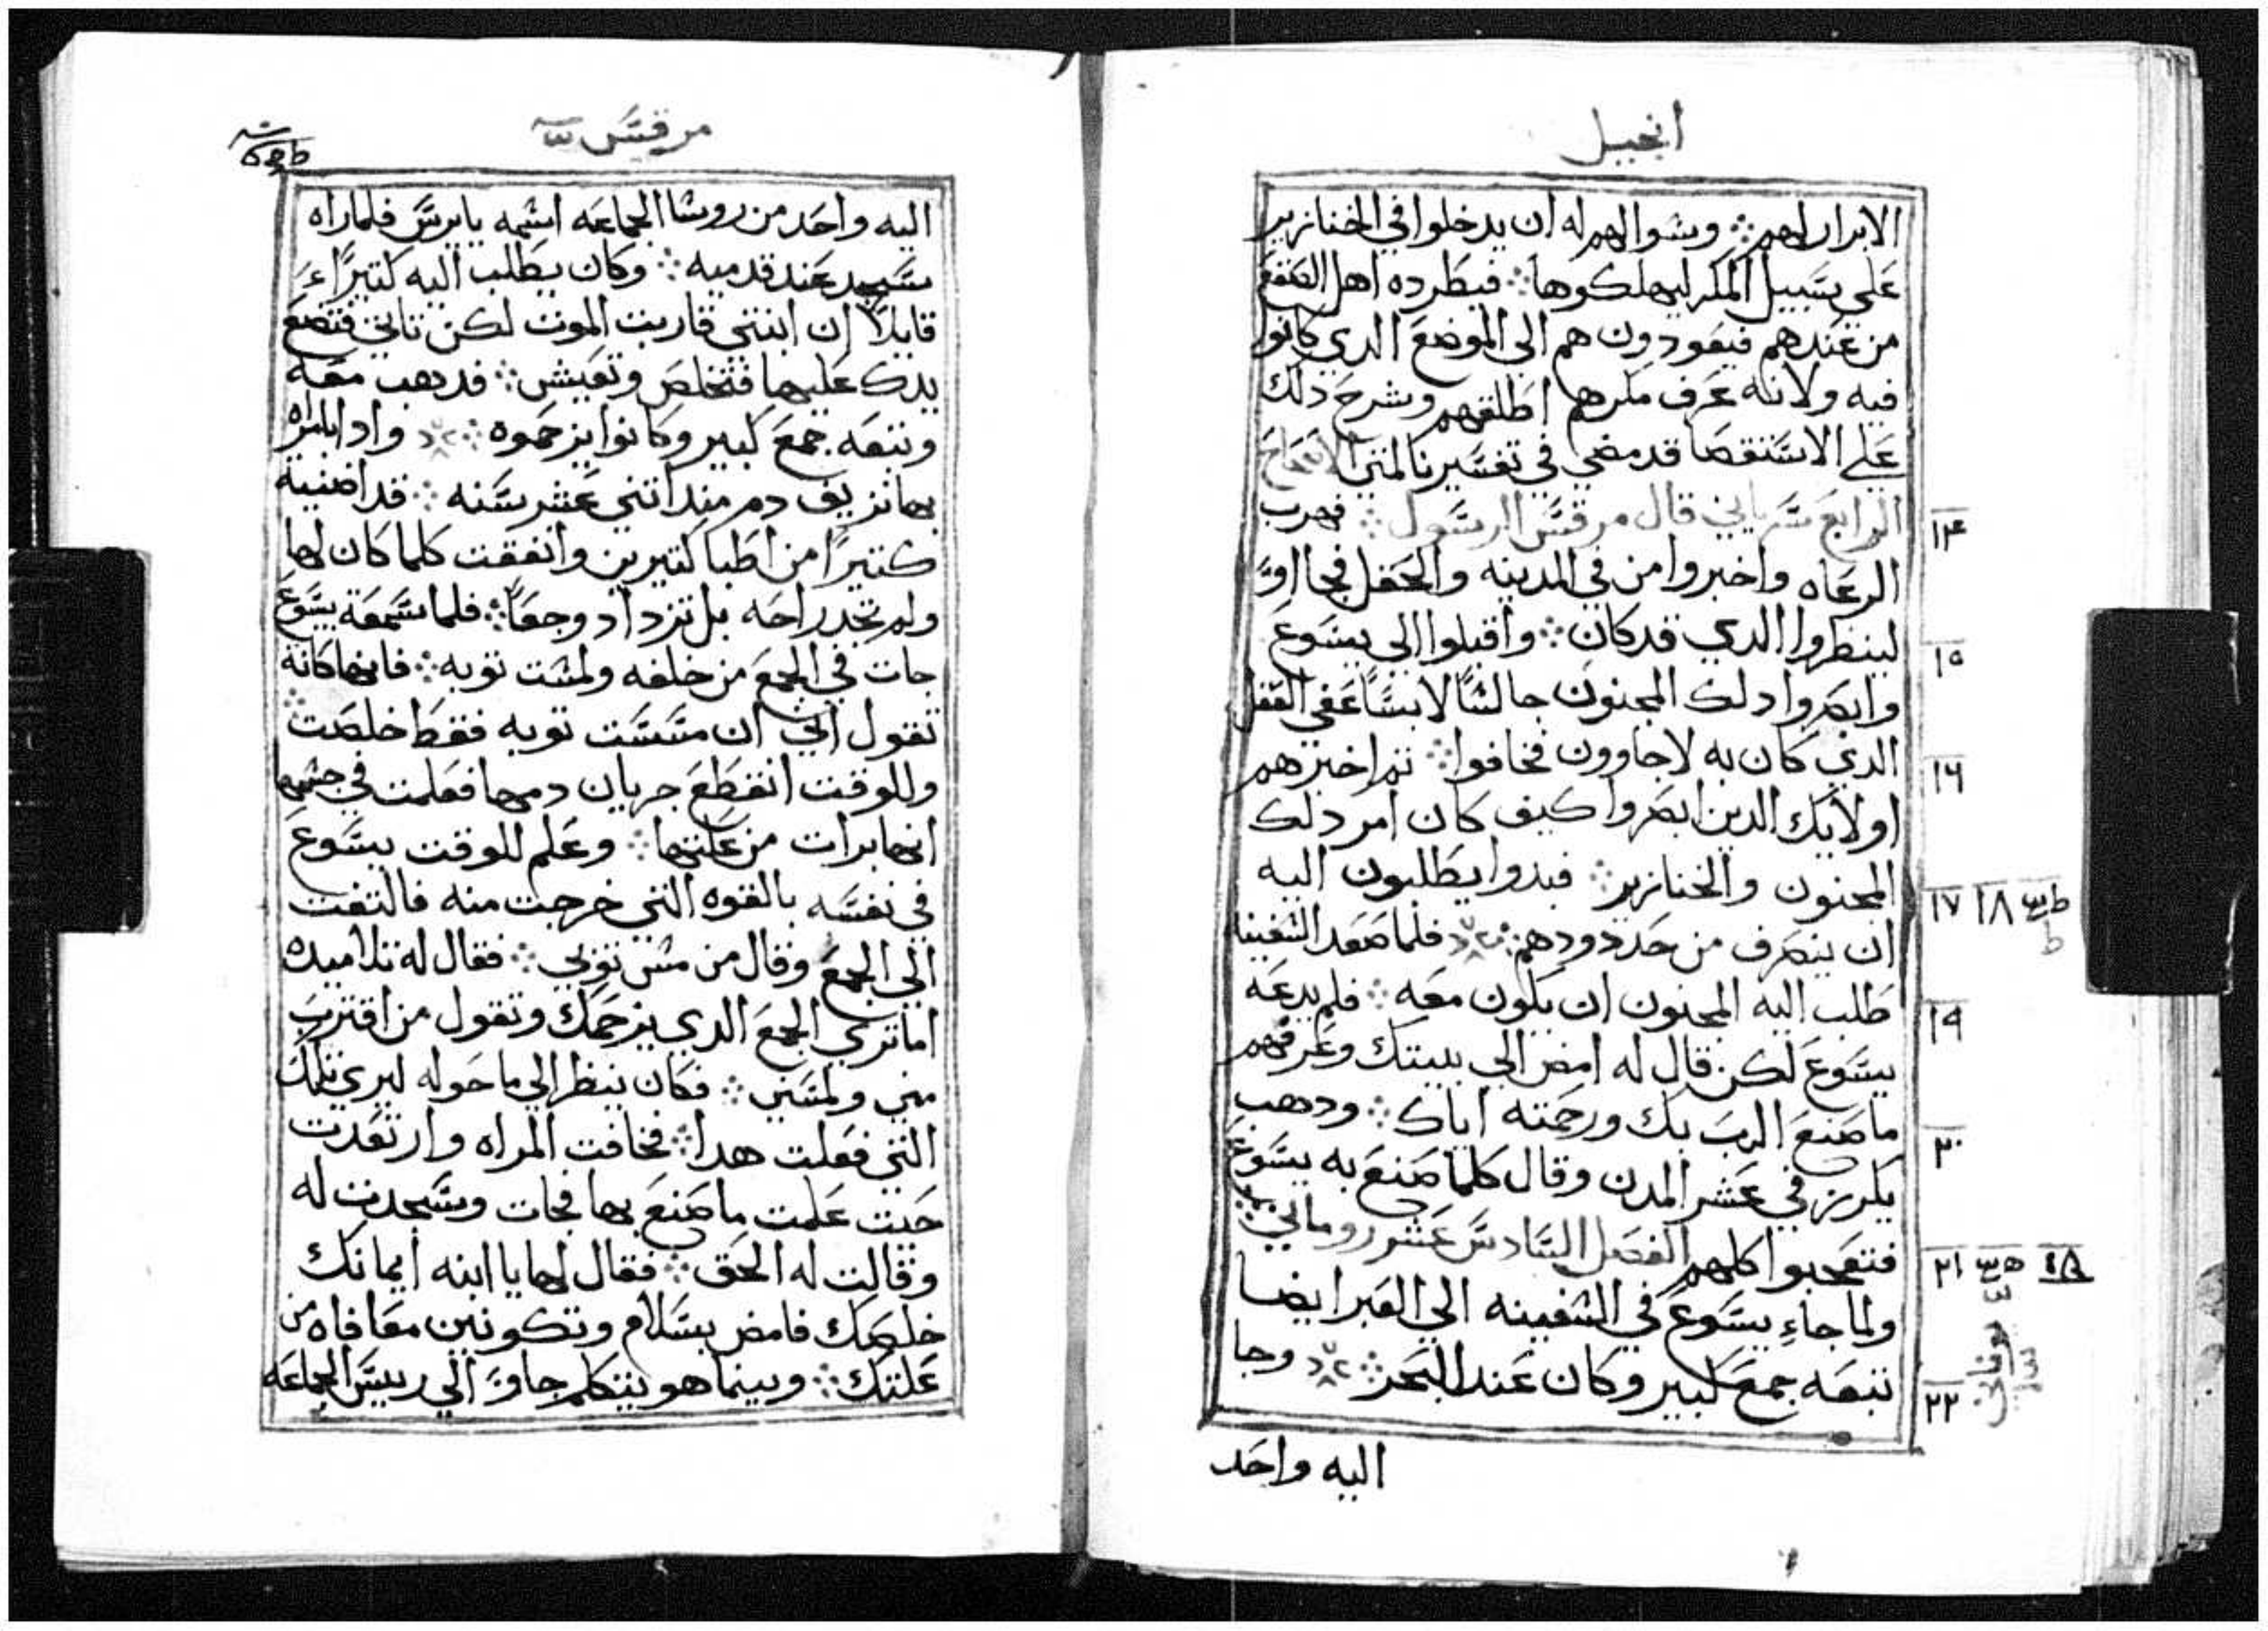 انجيل
الابرار لهم ؞ وسوالهم له ان يدخلوا في الخنازير
علي سبيل المكر ليهلكوها ؞ فيطرده اهل الصقع
من عندهم فيعودون هم الي الموضع الدي كانوا
فيه ولانه عرف مكرهم اطلقهم وشرح دلك
علي الاستقصا قد مضي في تفسيرنا لمتي الاصحاح
الرابع سرياني قال مرقس الرسول ؞ فهرب
١٤
الرعاه واخبروا من في المدينه والحقل فجااو
لينظروا الدي قد كان ؞ واقبلوا الي يسوع
١٥
وابصروا دلك المجنون جالسًا لابسًا عفي العقل
الدي كان به لاجاوون فخافوا ؞ تم اخبرهم
١٦
اولايك الدين ابصروا كيف كان امر دلك
المجنون والخنازير ؞ فبدوا يطلبون اليه
١٧ ١٨
ان ينصرف من حدودهم ؞ فلما صعد السفينا
طلب اليه المجنون ان يكون معه ؞ فلم يدعه
١٩
يسوع لكن قال له امض الي بيتك وعرفهم
ما صنع الرب بك ورحمته اياك ؞ ودهب
٢٠
يكرز في عشر المدن وقال كلما صنع به يسوع
فتعجبوا كلهم الفصل السادس عشر روماني
٢١
ولما جاءِ يسوع في السفينه الي العبر ايضا
تبعه جمع كبير وكان عند البحر ؞ وجا
٢٢
اليه واحد
مرقس
اليه واحد من روسا الجماعه اسمه يايرس فلما راه
سجد عند قدميه ؞ وكان يطلب اليه كتيرًا
قايلًا ان ابنتي قاربت الموت لكن تاتي فتضع
يدك عليها فتخلص وتعيش ؞ فدهب معه
وتبعه جمع كبير وكانوا يزحموه ؞ وادا بامراه
بها نزيف دم مند اتني عشر سنه ؞ قد اضنيه
كتيرًا من اطبا كتيرين وانفقت كلما كان لها
ولم تجد راحه بل تزداد وجعًا ؞ فلما سمعة بيسوع
جات في الجمع من خلفه ولمست توبه ؞ فانها كانة
تقول اني ان مسست توبه فقط خلصت ؞
وللوقت انقطع جريان دمها فعلمت في جسمها
انها برات من علتها ؞ وعلم للوقت يسوع
في نفسه بالقوه التي خرجت منه فالتفت
الي الجمع وقال من مس توبي ؞ فقال له تلاميده
اما تري الجمع الدي يزحمك وتقول من اقترب
مني ولمسني ؞ فكان ينظر الي ما حوله ليري تلك
التي فعلت هدا ؞ فخافت المراه وارتعدت
حيت علمت ما صنع بها فجات وسجدت له
وقالت له الحق ؞ فقال لها يا ابنه ايمانك
خلصك فامض بسلام وتكونين معافاه من
علتك ؞ وبينما هو يتكلم جاو الي رييس الجماعه